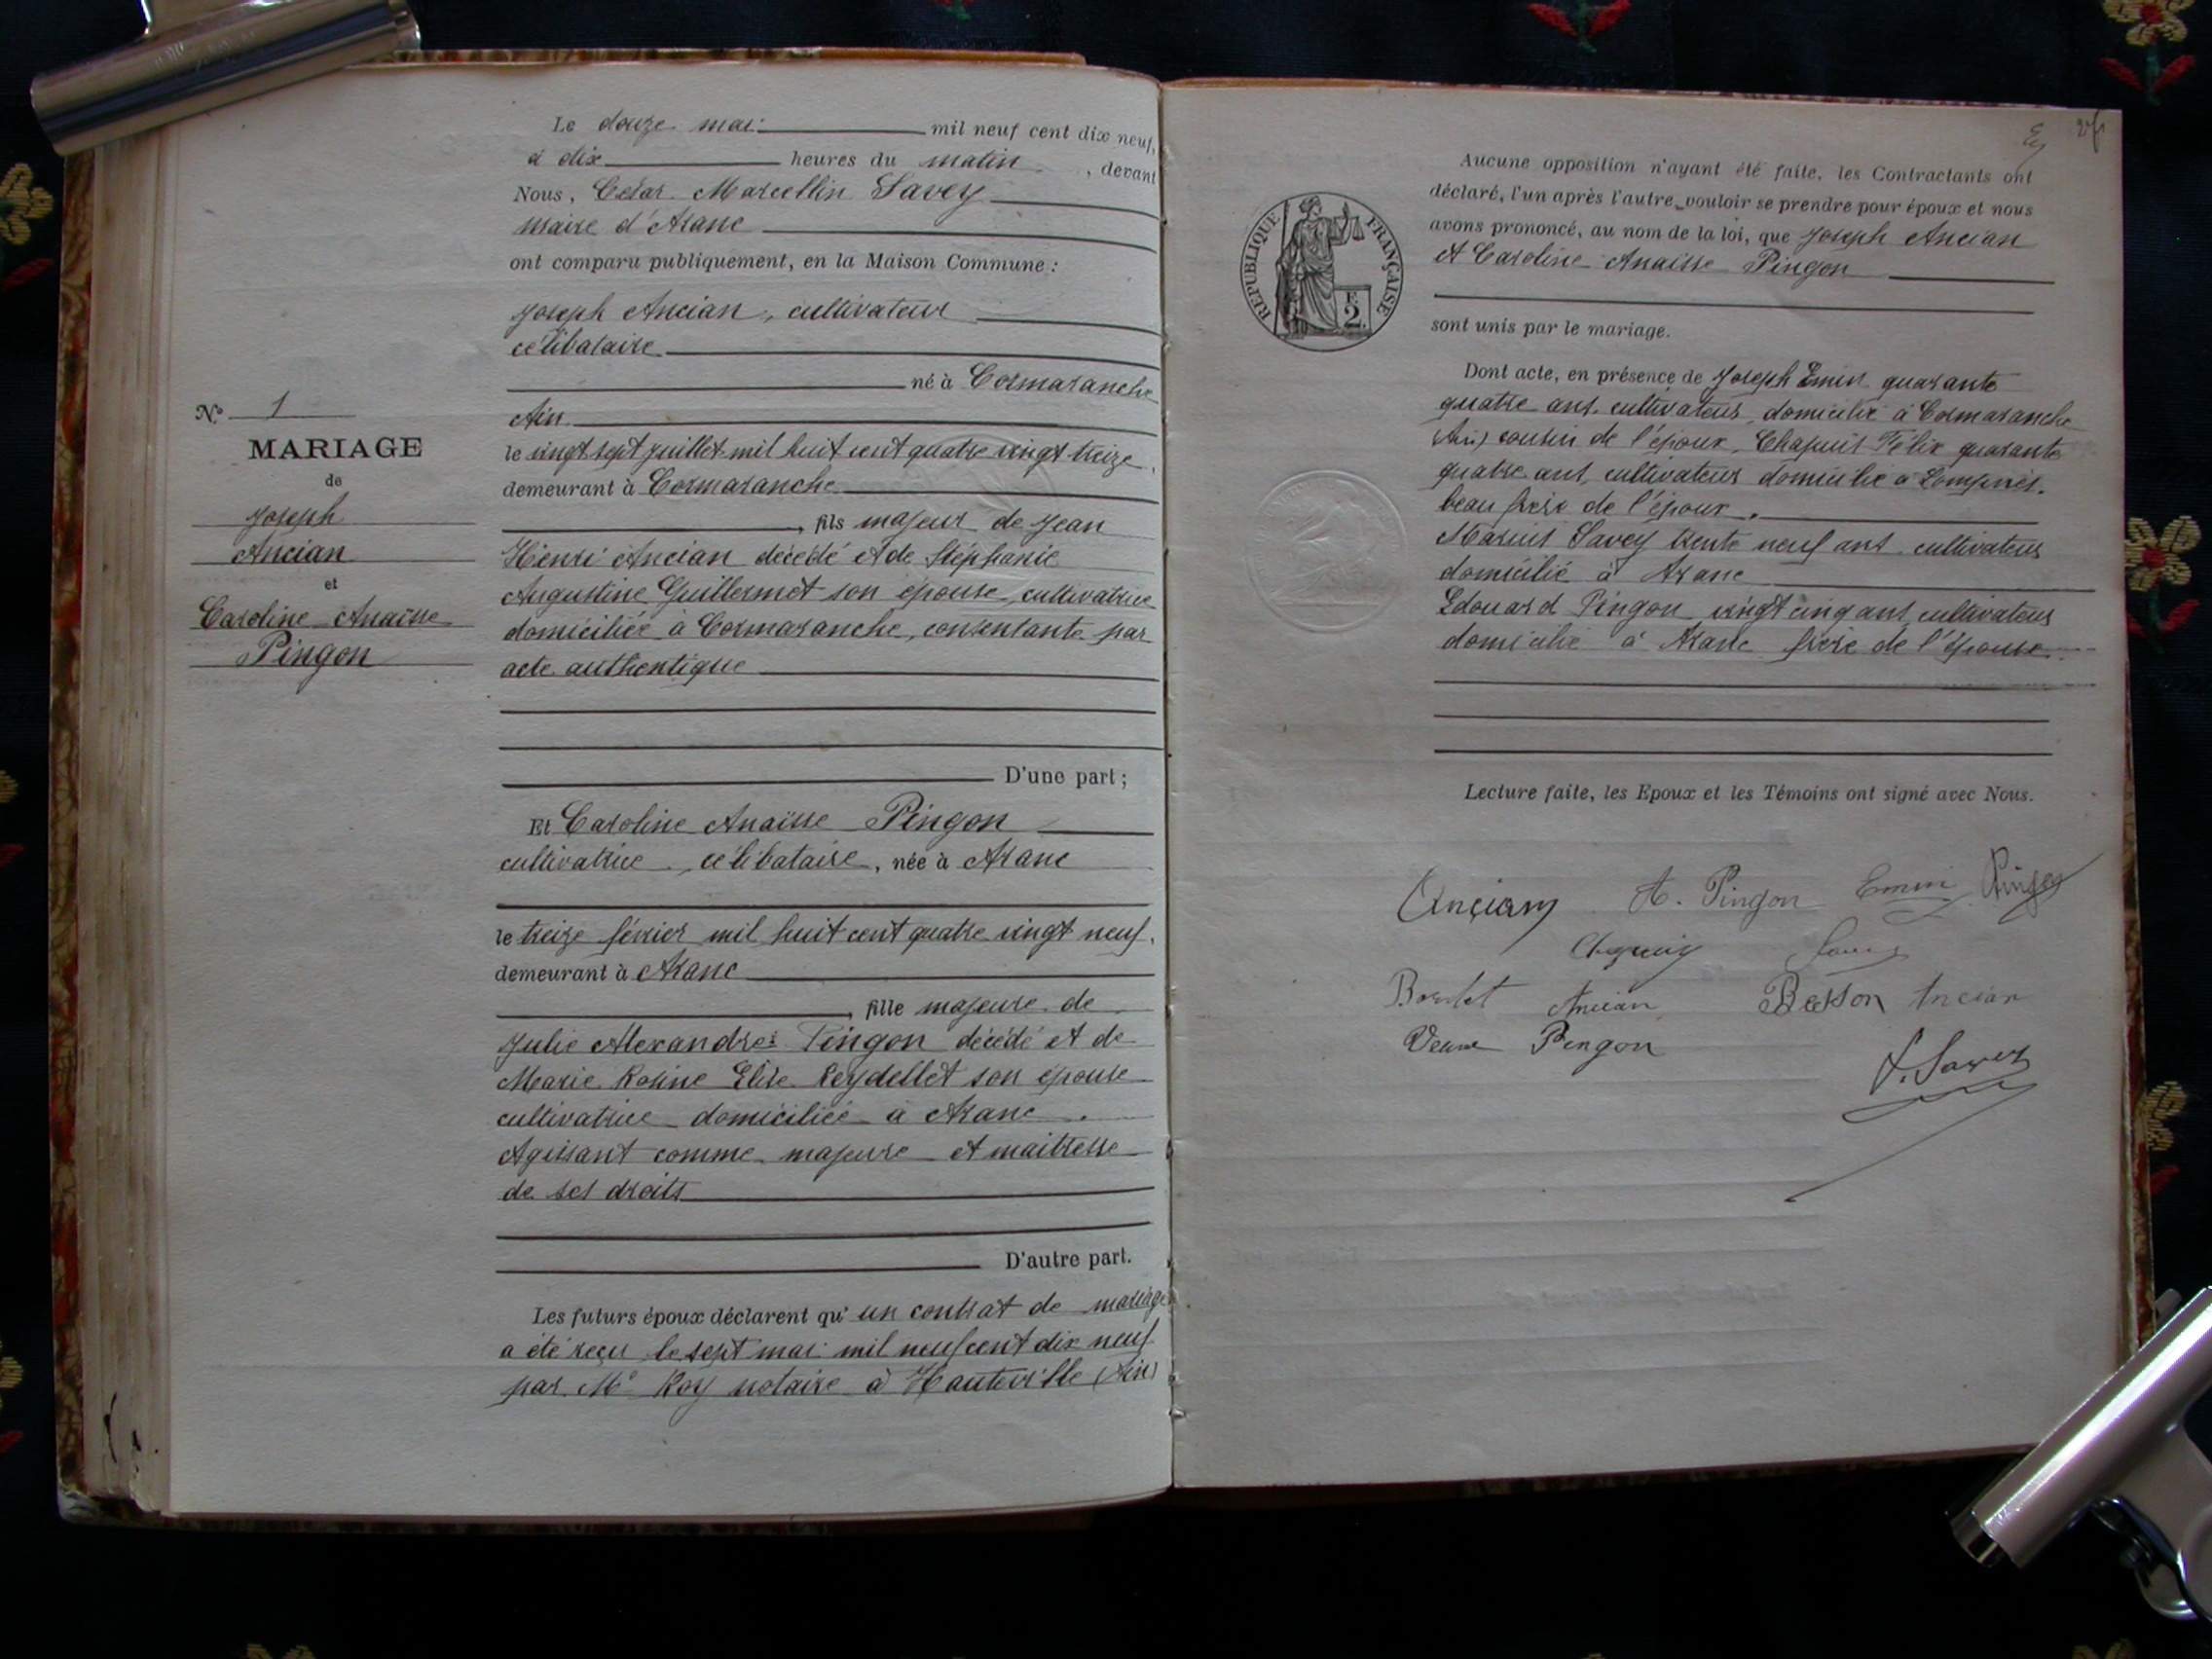 Le douze mai mil neuf cent dix neuf,
à dix heures du matin, devant
Nous, César Marcellin Savey
maire d'Aranc
ont comparu publiquement, en la Maison Commune :
Joseph Ancian, cultivateur
célibataire
né à Cormaranche
Ain
le vingt sept juillet mil huit cent quatre vingt treize,
demeurant à Cormaranche
, fils majeur de Jean
Henri Ancian décédé et de Stéphanie
Augustine Guillermet son épouse, cultivatrice
domiciliée à Cormaranche, consentante par
acte authentique
D'une part ;
N° 1
MARIAGE
de
Joseph
Ancian
et
Caroline Anaïsse
Pingon
Et Caroline Anaïsse Pingon
cultivatrice, célibataire, née à Aranc
le treize février mil huit cent quatre vingt neuf,
demeurant à Aranc
, fille majeure de
Julie Alexandre Pingon décédé et de
Marie Rosine Elise Reydellet son épouse
cultivatrice domiciliée à Aranc.
Agissant comme majeure et maitresse
de ses droits
D'autre part.
Les futurs époux déclarent qu'un contrat de mariage
a été reçu le sept mai mil neuf cent dix neuf
par Me Roy notaire à Hauteville (Ain)
Aucune opposition n'ayant été faite, les Contractants ont
déclaré, l'un après l'autre, vouloir se prendre pour époux et nous
avons prononcé, au nom de la loi, que Joseph Ancian
et Caroline Anaïsse Pingon
sont unis par le mariage.
REPUBLIQUE FRANÇAISE
2F
Dont acte, en présence de Joseph Emin quarante
quatre ans, cultivateur, domicilié à Cormaranche
(Ain) cousin de l'époux, Chapuis Félix quarante
quatre ans, cultivateur domicilié à Lompnès.
beau frère de l'époux.
Marius Savey trente neuf ans cultivateur
domicilié à Aranc
Edouard Pingon vingt cinq ans, cultivateur
domicilié à Aranc frère de l'épouse
Lecture faite, les Epoux et les Témoins ont signé avec Nous.
Ancian A. Pingon Emin Pingon
Chapuis Savey
Ancian Besson Ancian
Veuve Pingon
Savey